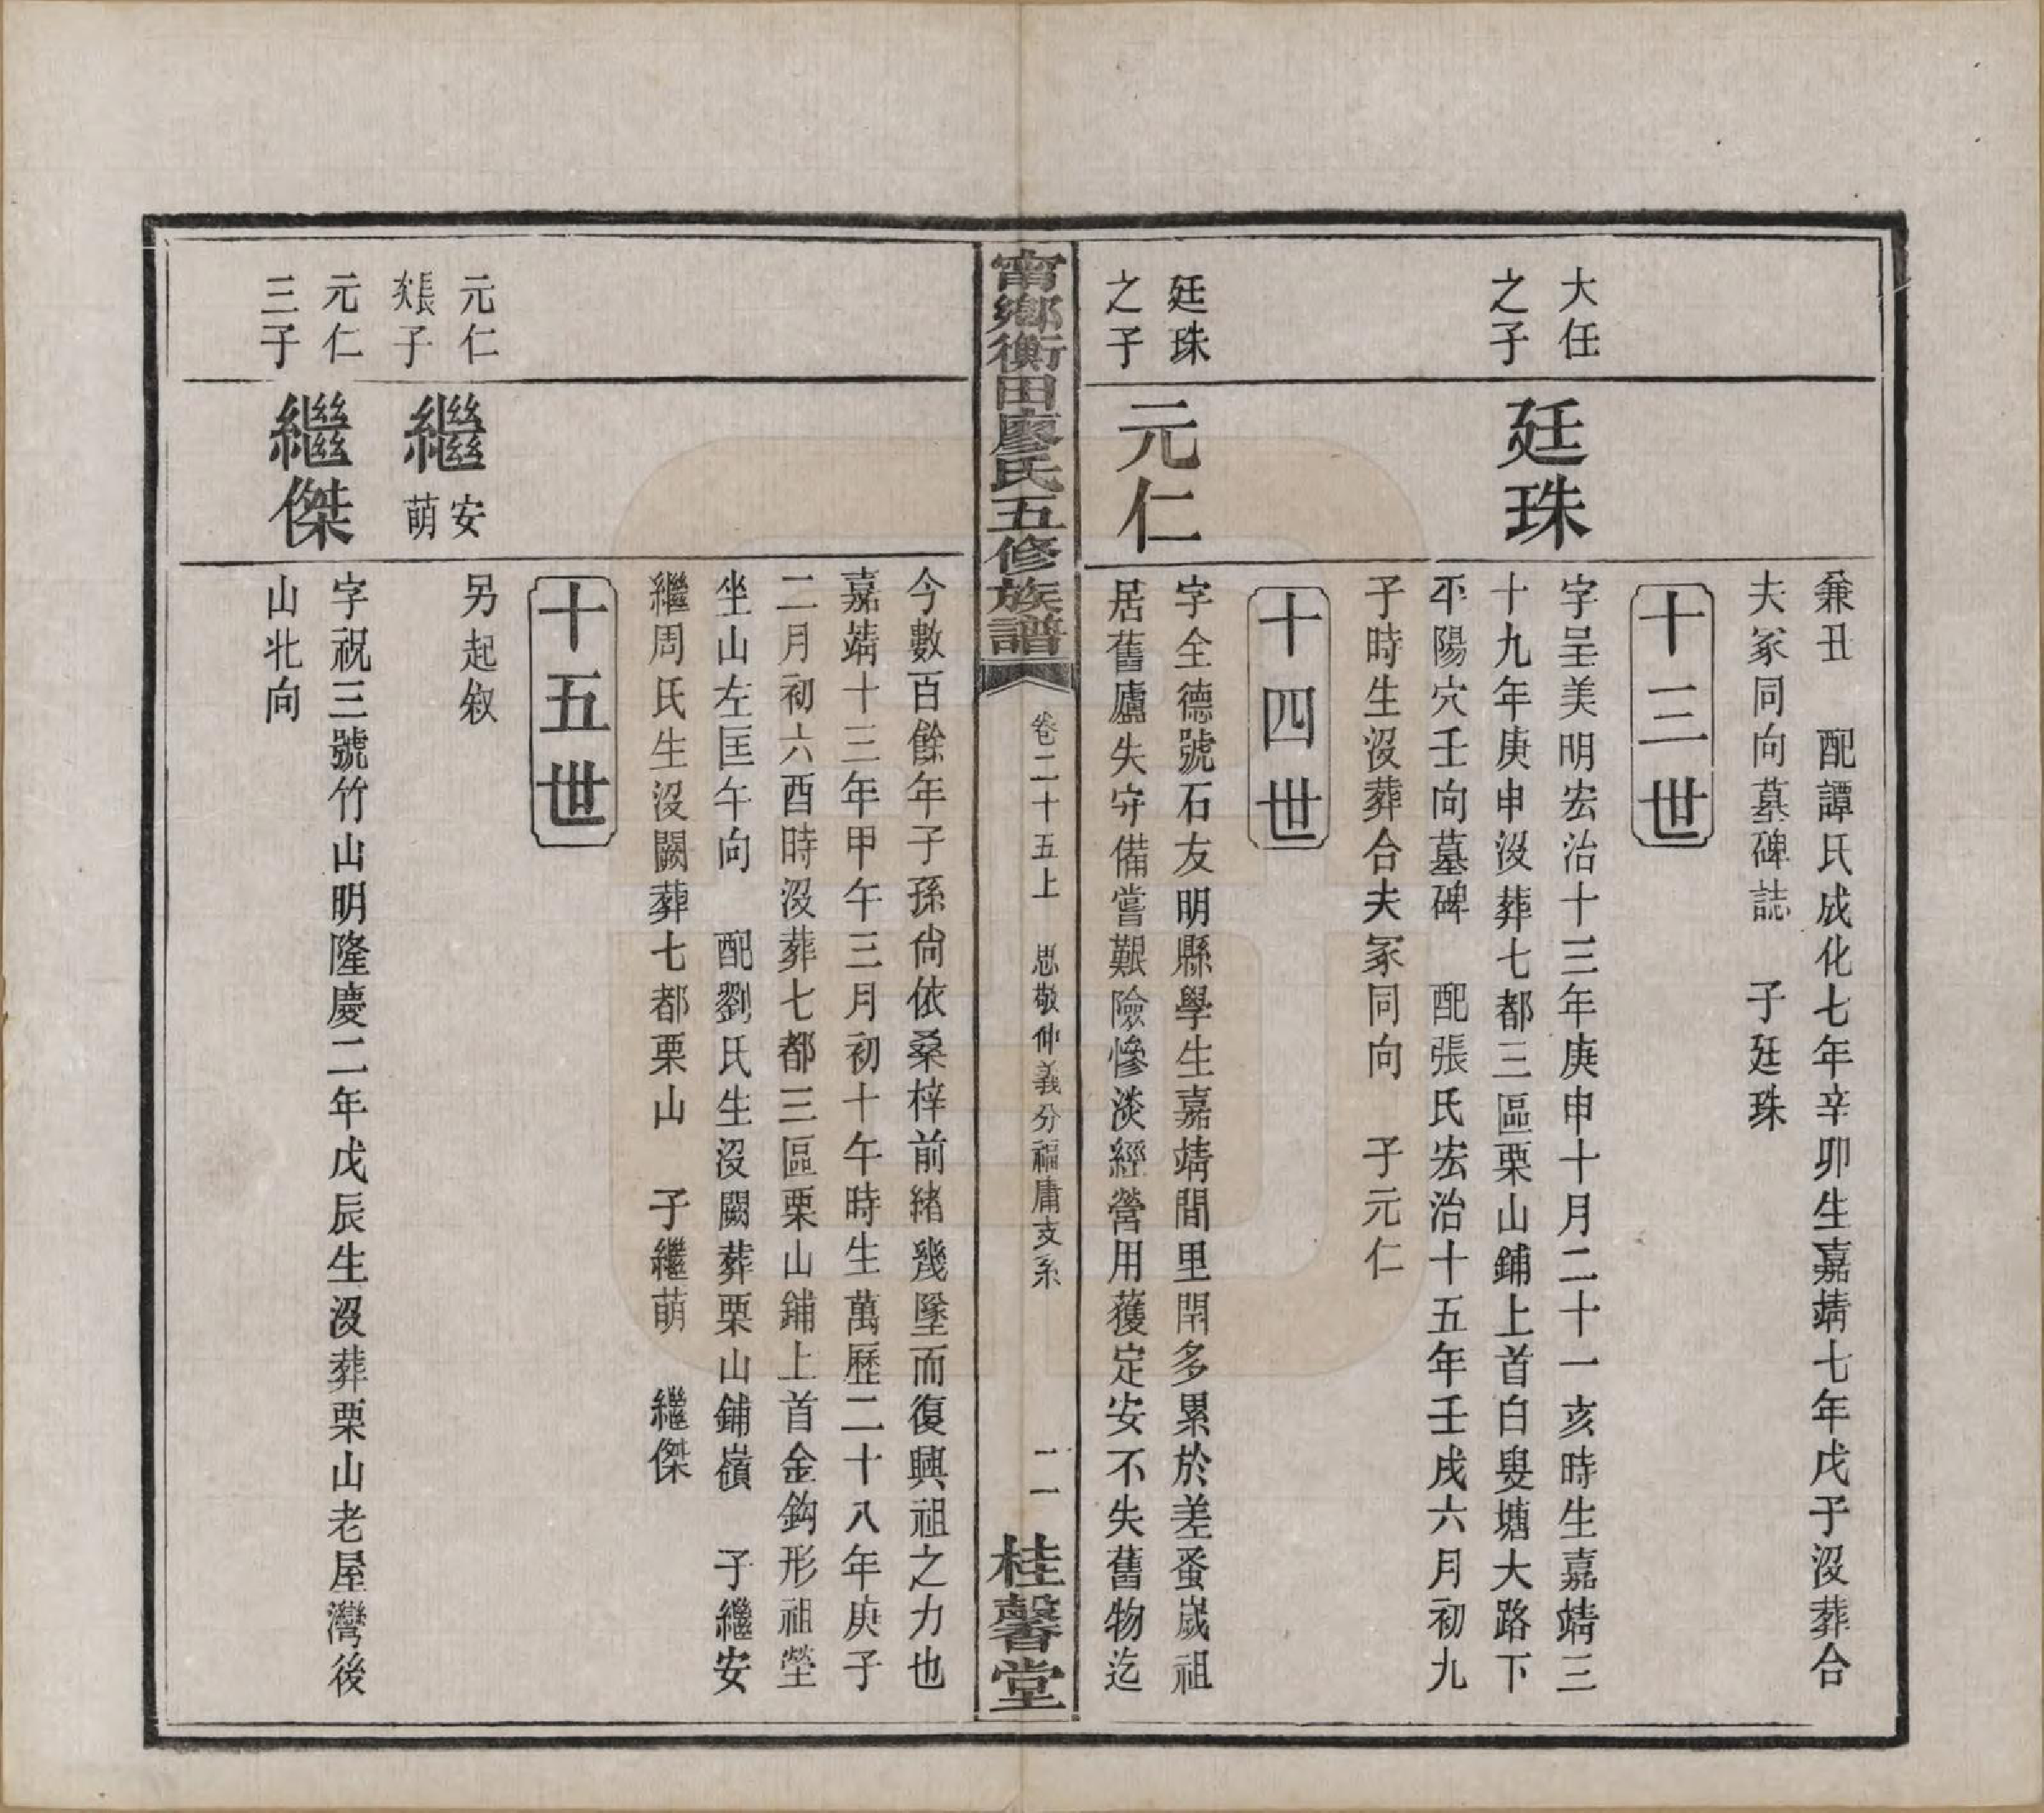 兼丑　配譚氏成化七年辛卯生嘉靖七年戊子沒葬合
夫冢同向墓碑誌　子廷珠
十三世
大任
之子
廷珠
字呈美明宏治十三年庚申十月二十一亥時生嘉靖三
十九年庚申沒葬七都三區栗山鋪上首白叟塘大路下
平陽穴壬向墓碑　配張氏宏治十五年壬戌六月初九
子時生沒葬合夫冢同向　子元仁
十四世
廷珠
之子
元仁
字全德號石友明縣學生嘉靖間里閈多累於差蚤歲祖
居舊廬失守備嘗艱險慘淡經營用獲定安不失舊物迄
甯鄉衡田廖氏五修族譜
卷二十五上　思敬仲義分福庸支系
二一
桂馨堂
今數百餘年子孫尙依桑梓前緒幾墜而復興祖之力也
嘉靖十三年甲午三月初十午時生萬歷二十八年庚子
二月初六酉時沒葬七都三區栗山鋪上首金鈎形祖塋
坐山左匡午向　配劉氏生沒闕葬栗山鋪嶺　子繼安
繼周氏生沒闕葬七都栗山　子繼萌　繼傑
十五世
元仁
長子
次
繼
安
萌
另起敘
元仁
三子
繼傑
字祝三號竹山明隆慶二年戊辰生沒葬栗山老屋灣後
山北向